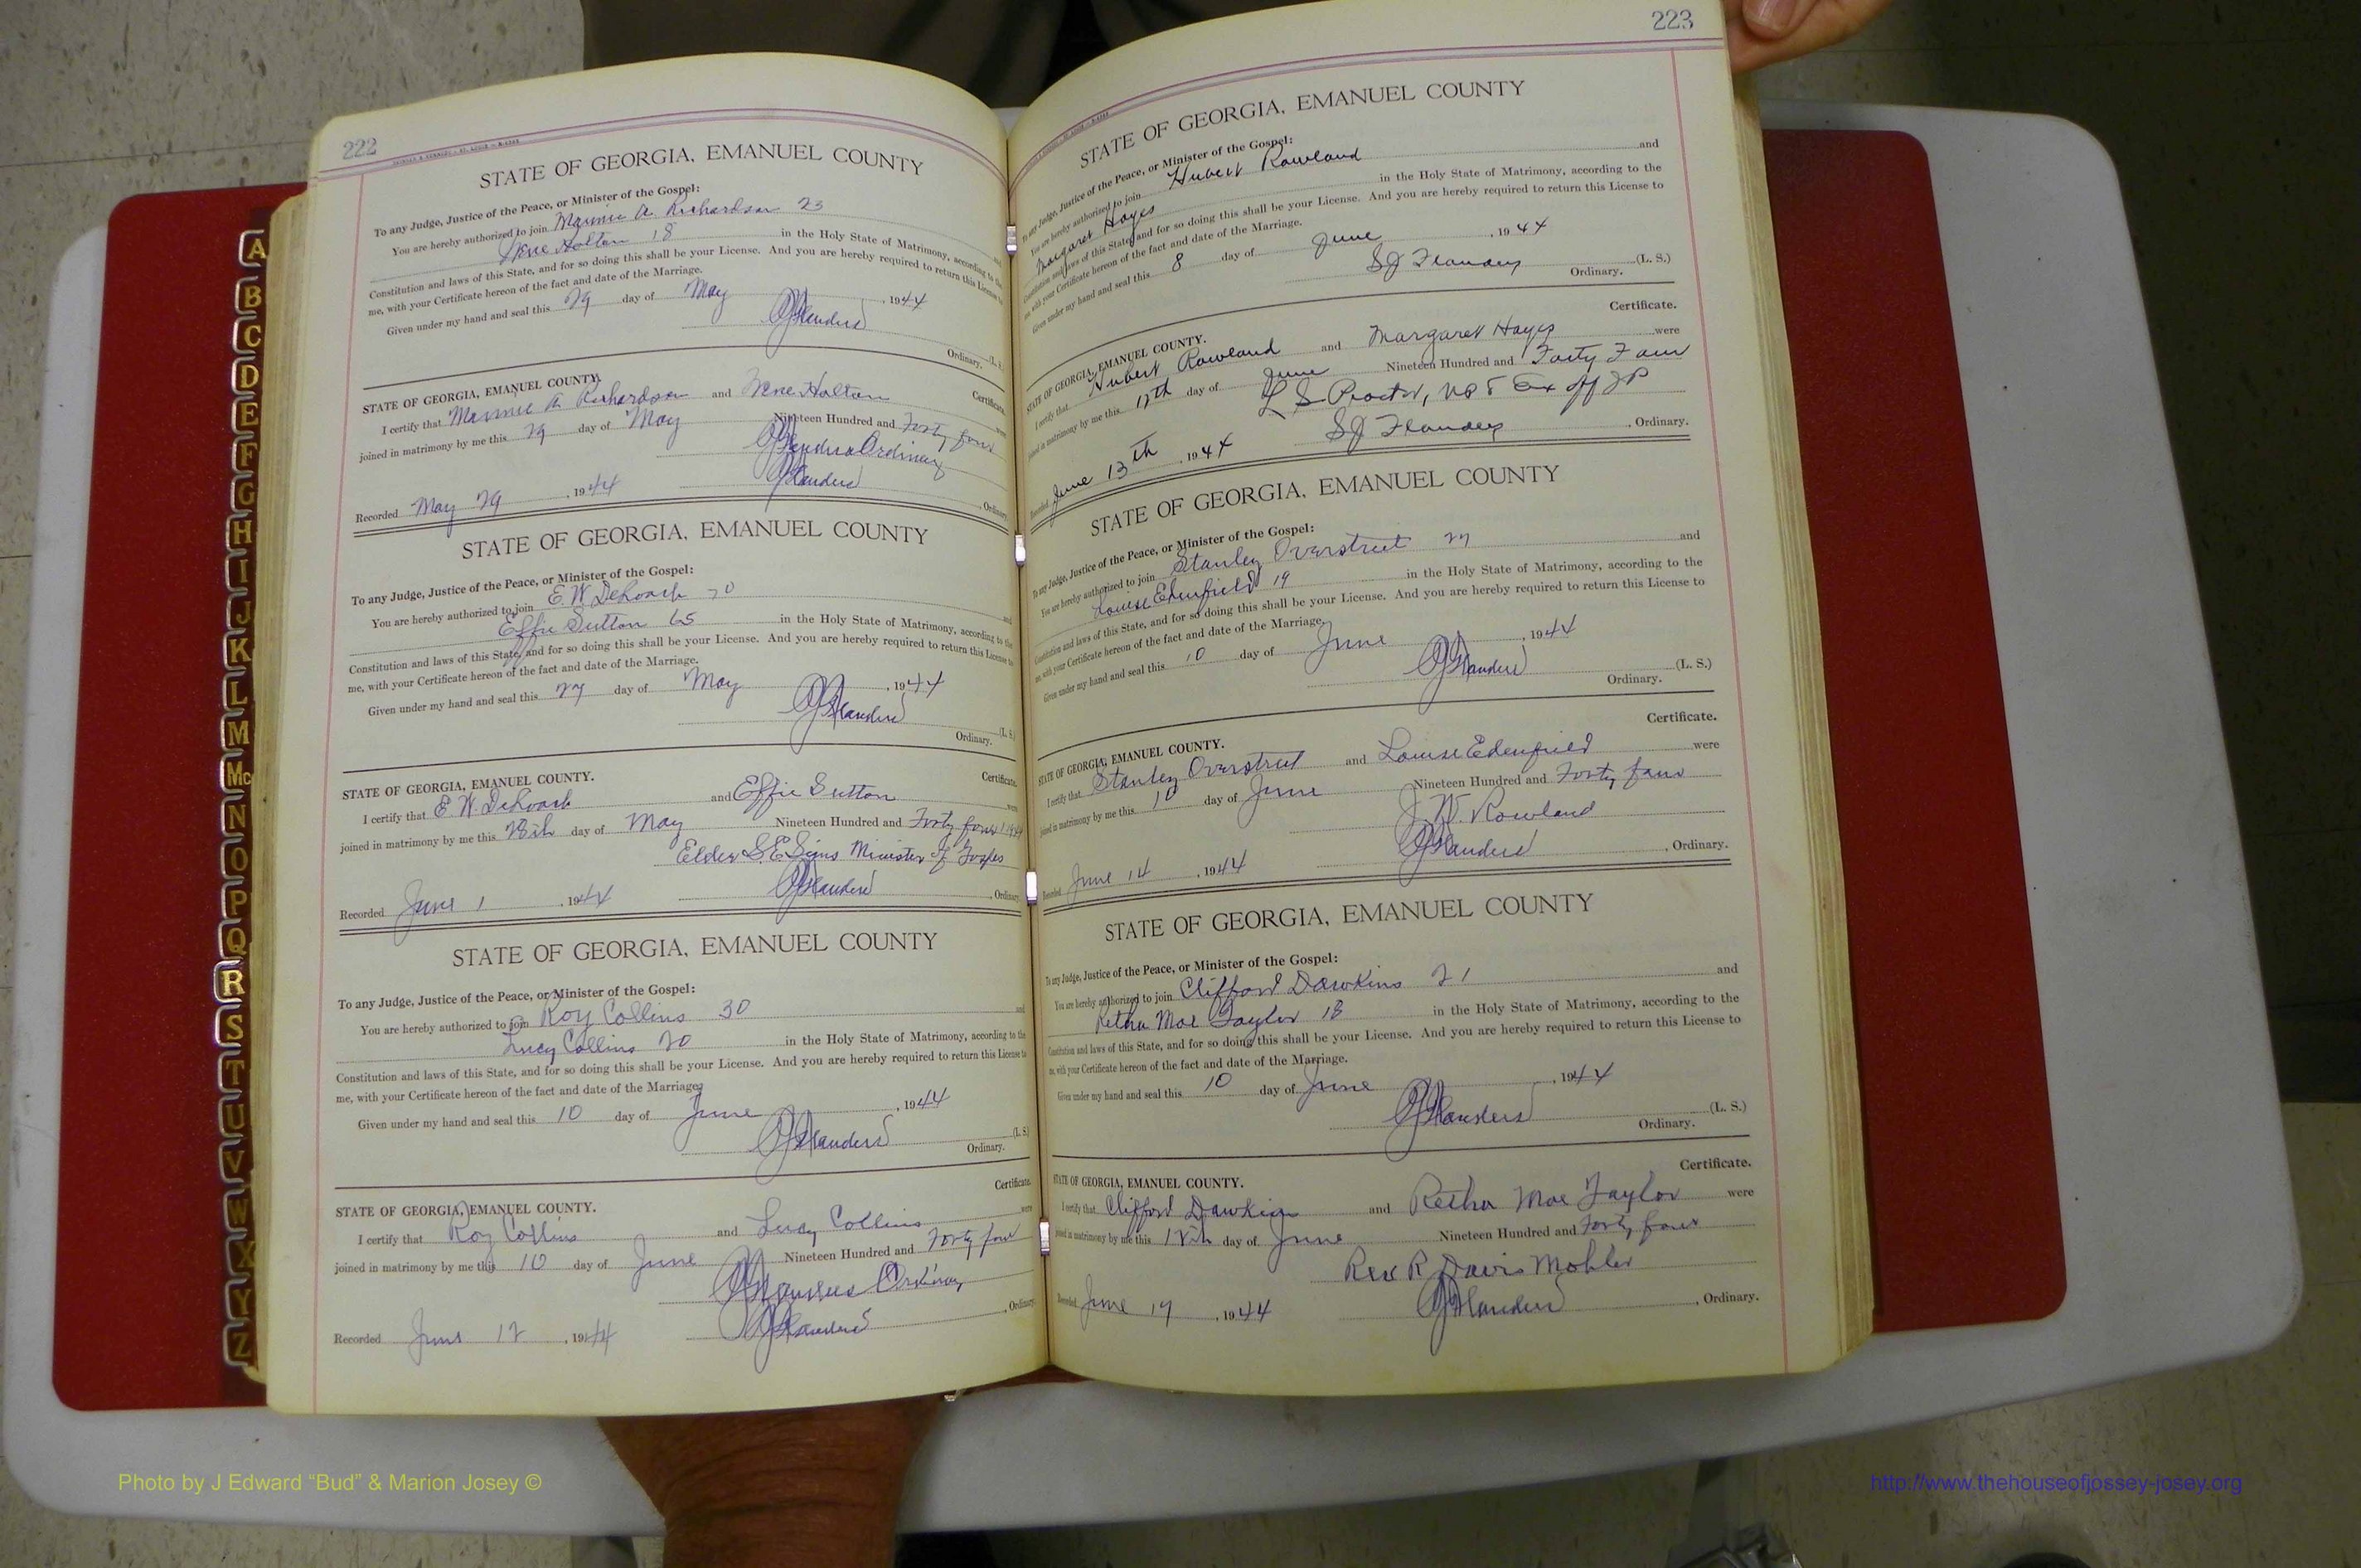 222
STATE OF GEORGIA, EMANUEL COUNTY
To any Judge, Justice of the Peace, or Minister of the Gospel:
You are hereby authorized to join Mannie A Richardson 23 and
Irene Holton 18 in the Holy State of Matrimony, according to the
Constitution and laws of this State, and for so doing this shall be your License. And you are hereby required to return this License to
me, with your Certificate hereon of the fact and date of the Marriage.
Given under my hand and seal this 29 day of May, 1944
Flanders (L. S.)
Ordinary.
STATE OF GEORGIA, EMANUEL COUNTY. Certificate.
I certify that Mannie A Richardson and Irene Holton were
joined in matrimony by me this 29 day of May Nineteen Hundred and Forty four
Flanders Ordinary
Recorded May 29, 1944 Flanders, Ordinary.
STATE OF GEORGIA, EMANUEL COUNTY
To any Judge, Justice of the Peace, or Minister of the Gospel:
You are hereby authorized to join E. W. DeLoach 70 and
Effie Sutton 65 in the Holy State of Matrimony, according to the
Constitution and laws of this State, and for so doing this shall be your License. And you are hereby required to return this License to
me, with your Certificate hereon of the fact and date of the Marriage.
Given under my hand and seal this 27 day of May, 1944
Flanders (L. S.)
Ordinary.
STATE OF GEORGIA, EMANUEL COUNTY. Certificate.
I certify that E. W. DeLoach and Effie Sutton were
joined in matrimony by me this 28th day of May Nineteen Hundred and Forty four 1944
Elder S. E. Sims Minister of Gospel
Recorded June 1, 1944 Flanders, Ordinary.
STATE OF GEORGIA, EMANUEL COUNTY
To any Judge, Justice of the Peace, or Minister of the Gospel:
You are hereby authorized to join Roy Collins 30 and
Lucy Collins 20 in the Holy State of Matrimony, according to the
Constitution and laws of this State, and for so doing this shall be your License. And you are hereby required to return this License to
me, with your Certificate hereon of the fact and date of the Marriage.
Given under my hand and seal this 10 day of June, 1944
Flanders (L. S.)
Ordinary.
Certificate.
STATE OF GEORGIA, EMANUEL COUNTY.
I certify that Roy Collins and Lucy Collins were
joined in matrimony by me this 10 day of June Nineteen Hundred and Forty four
Flanders Ordinary
Recorded June 12, 1944 Flanders, Ordinary.
223
STATE OF GEORGIA, EMANUEL COUNTY
To any Judge, Justice of the Peace, or Minister of the Gospel:
You are hereby authorized to join Hubert Rowland and
Margaret Hayes in the Holy State of Matrimony, according to the
Constitution and laws of this State, and for so doing this shall be your License. And you are hereby required to return this License to
me, with your Certificate hereon of the fact and date of the Marriage.
Given under my hand and seal this 8 day of June, 1944
SJ Flanders (L. S.)
Ordinary.
Certificate.
STATE OF GEORGIA, EMANUEL COUNTY.
I certify that Hubert Rowland and Margaret Hayes were
joined in matrimony by me this day of June Nineteen Hundred and Forty Four
L S Proctor, NP & Ex off JP
Recorded June 13th, 1944 SJ Flanders, Ordinary.
STATE OF GEORGIA, EMANUEL COUNTY
To any Judge, Justice of the Peace, or Minister of the Gospel:
You are hereby authorized to join Stanley Overstreet and
Louise Edenfield 19 in the Holy State of Matrimony, according to the
Constitution and laws of this State, and for so doing this shall be your License. And you are hereby required to return this License to
me, with your Certificate hereon of the fact and date of the Marriage.
Given under my hand and seal this 10 day of June, 1944
Flanders (L. S.)
Ordinary.
Certificate.
STATE OF GEORGIA, EMANUEL COUNTY.
I certify that Stanley Overstreet and Louise Edenfield were
joined in matrimony by me this 10 day of June Nineteen Hundred and Forty four
J. W. Rowland
Recorded June 14, 1944 Flanders, Ordinary.
STATE OF GEORGIA, EMANUEL COUNTY
To any Judge, Justice of the Peace, or Minister of the Gospel:
You are hereby authorized to join Clifford Dawkins 21 and
Retha Mae Taylor 18 in the Holy State of Matrimony, according to the
Constitution and laws of this State, and for so doing this shall be your License. And you are hereby required to return this License to
me, with your Certificate hereon of the fact and date of the Marriage.
Given under my hand and seal this 10 day of June, 1944
Flanders (L. S.)
Ordinary.
Certificate.
STATE OF GEORGIA, EMANUEL COUNTY.
I certify that Clifford Dawkins and Retha Mae Taylor were
joined in matrimony by me this day of June Nineteen Hundred and Forty four
Rev R Davis Mobley
Recorded June, 1944 Flanders, Ordinary.
A
B
C
D
E
F
G
H
I
J
K
L
M
Mc
N
O
P
Q
R
S
T
U
V
W
X
Y
Z
Photo by J Edward “Bud” & Marion Josey ©
http://www.thehouseofjossey-josey.org